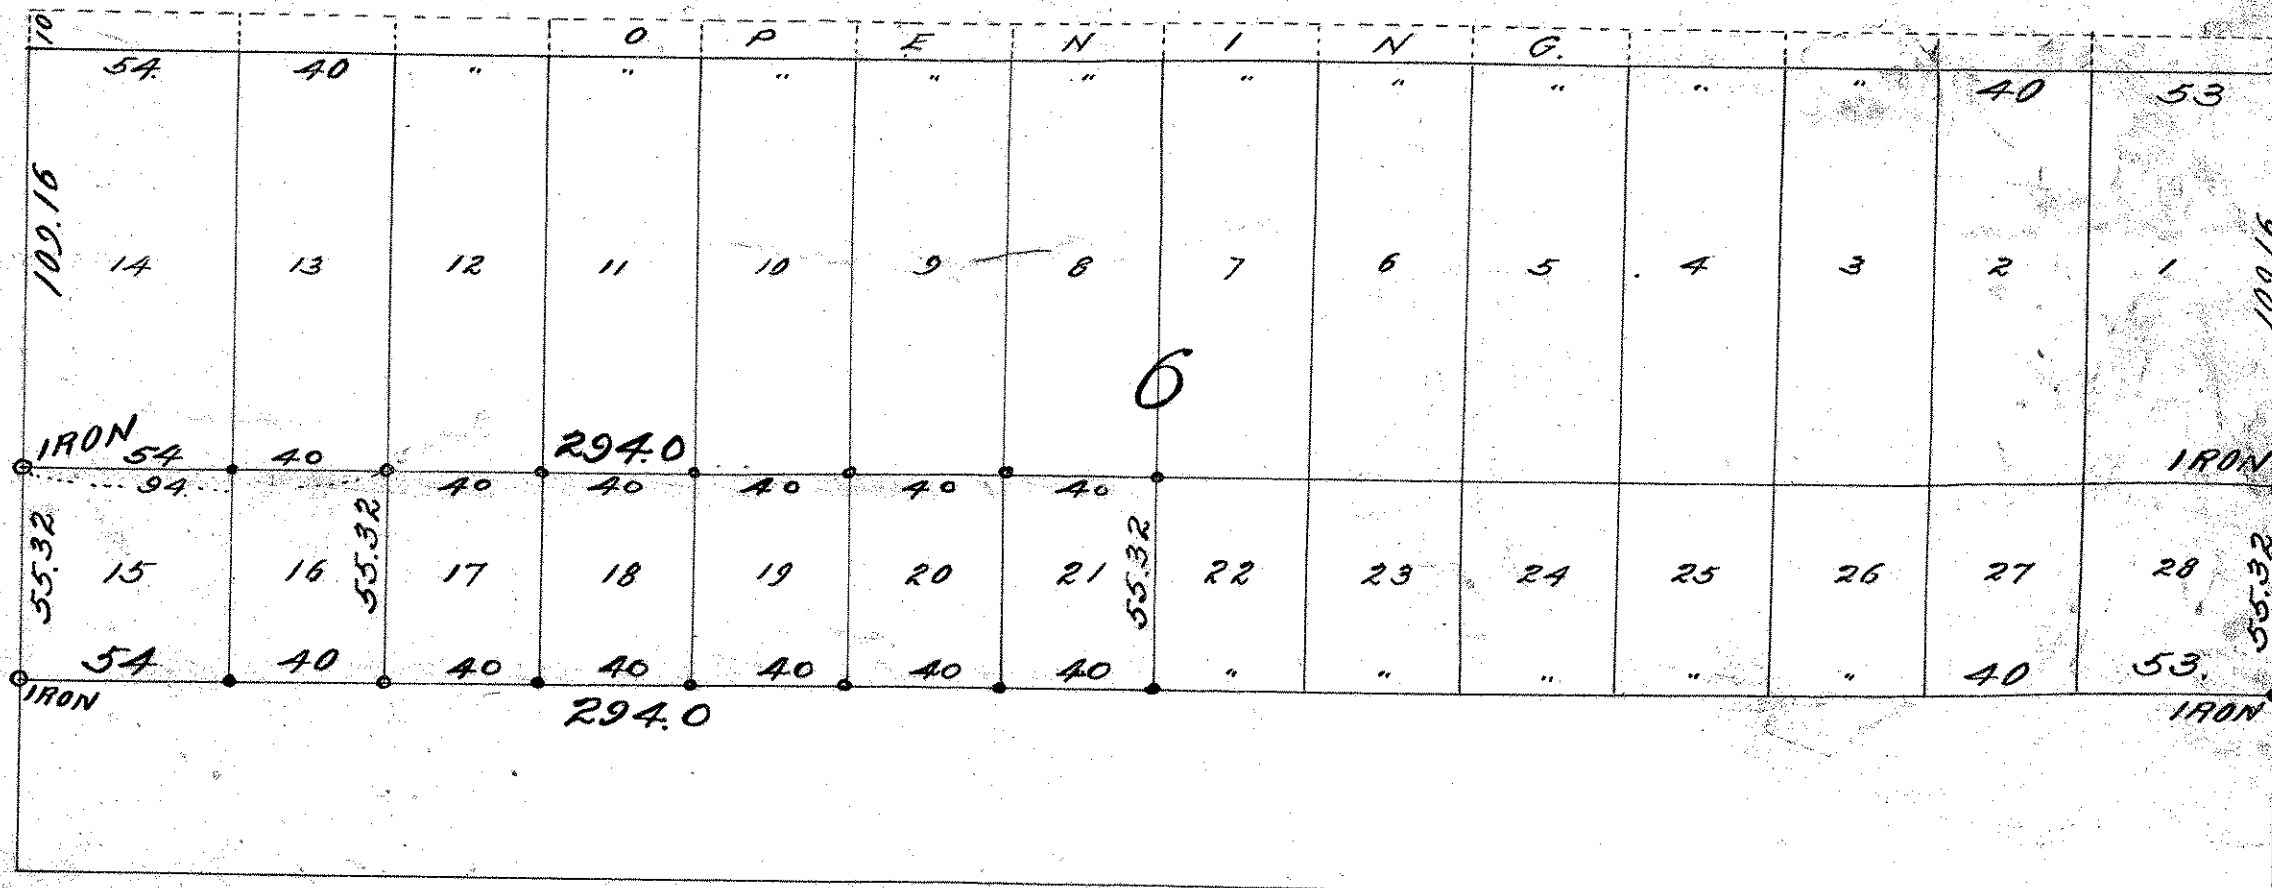 10 O P E N I N G.
54. 40 " " " " " " " " " " 40 53
109.16 109.16
14 13 12 11 10 9 8 7 6 5 4 3 2 1
6
IRON 54 40 294.0 IRON
94. 40 40 40 40 40
55.32 55.32 55.32 55.32
15 16 17 18 19 20 21 22 23 24 25 26 27 28
54 40 40 40 40 40 40 " " " " " 40 53.
IRON 294.0 IRON